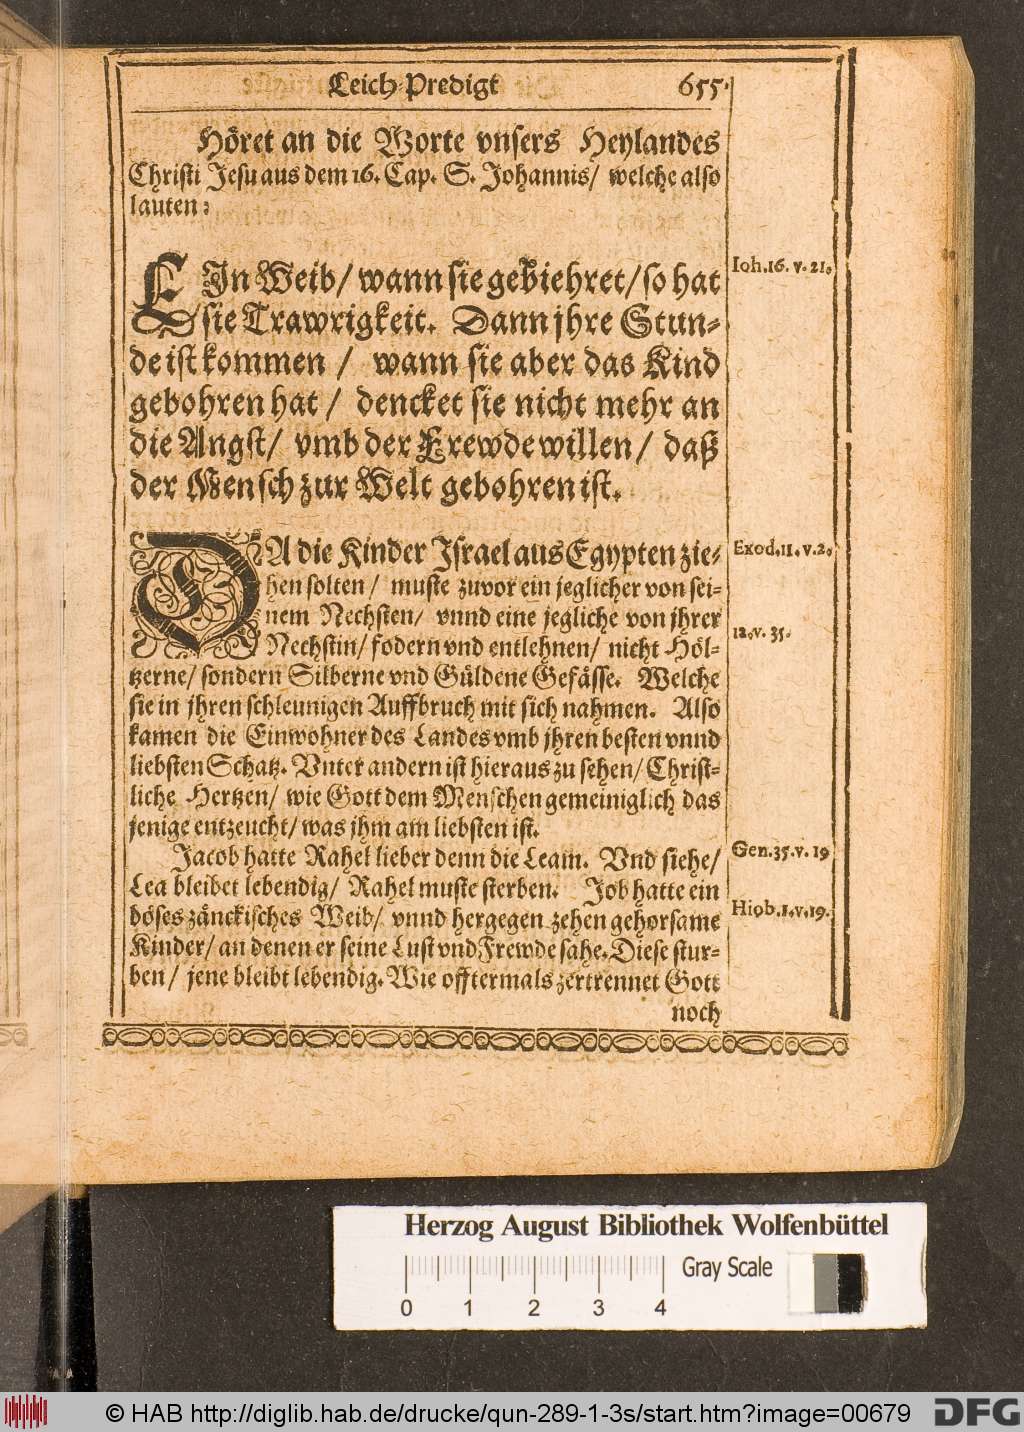 Leich-Predigt 655.
Höret an die Worte vnsers Heylandes
Christi Jesu aus dem 16. Cap. S. Johannis/ welche also
lauten:
EIn Weib/ wann sie gebiehret/ so hat
sie Trawrigkeit. Dann jhre Stun-
de ist kommen / wann sie aber das Kind
gebohren hat / dencket sie nicht mehr an
die Angst/ vmb der Frewde willen/ daß
der Mensch zur Welt gebohren ist.
Ioh.16. v. 21.
DA die Kinder Israel aus Egypten zie-
hen solten / muste zuvor ein jeglicher von sei-
nem Nechsten/ vnnd eine jegliche von jhrer
Nechstin/ fodern vnd entlehnen/ nicht Höl-
tzerne/ sondern Silberne vnd Güldene Gefässe. Welche
sie in jhren schleunigen Auffbruch mit sich nahmen. Also
kamen die Einwohner des Landes vmb jhren besten vnnd
liebsten Schatz. Vnter andern ist hieraus zu sehen/ Christ-
liche Hertzen/ wie Gott dem Menschen gemeiniglich das
jenige entzeucht/ was jhm am liebsten ist.
Exod.11. v.2.
12. v. 35.
Jacob hatte Rahel lieber denn die Leam. Vnd siehe/
Lea bleibet lebendig/ Rahel muste sterben. Job hatte ein
böses zänckisches Weib/ vnnd hergegen zehen gehorsame
Kinder/ an denen er seine Lust vnd Frewde sahe. Diese stur-
ben/ jene bleibt lebendig. Wie offtermals zertrennet Gott
noch
Gen.35. v. 19
Hiob.1. v.19.
Herzog August Bibliothek Wolfenbüttel
Gray Scale
0 1 2 3 4
© HAB http://diglib.hab.de/drucke/qun-289-1-3s/start.htm?image=00679
DFG